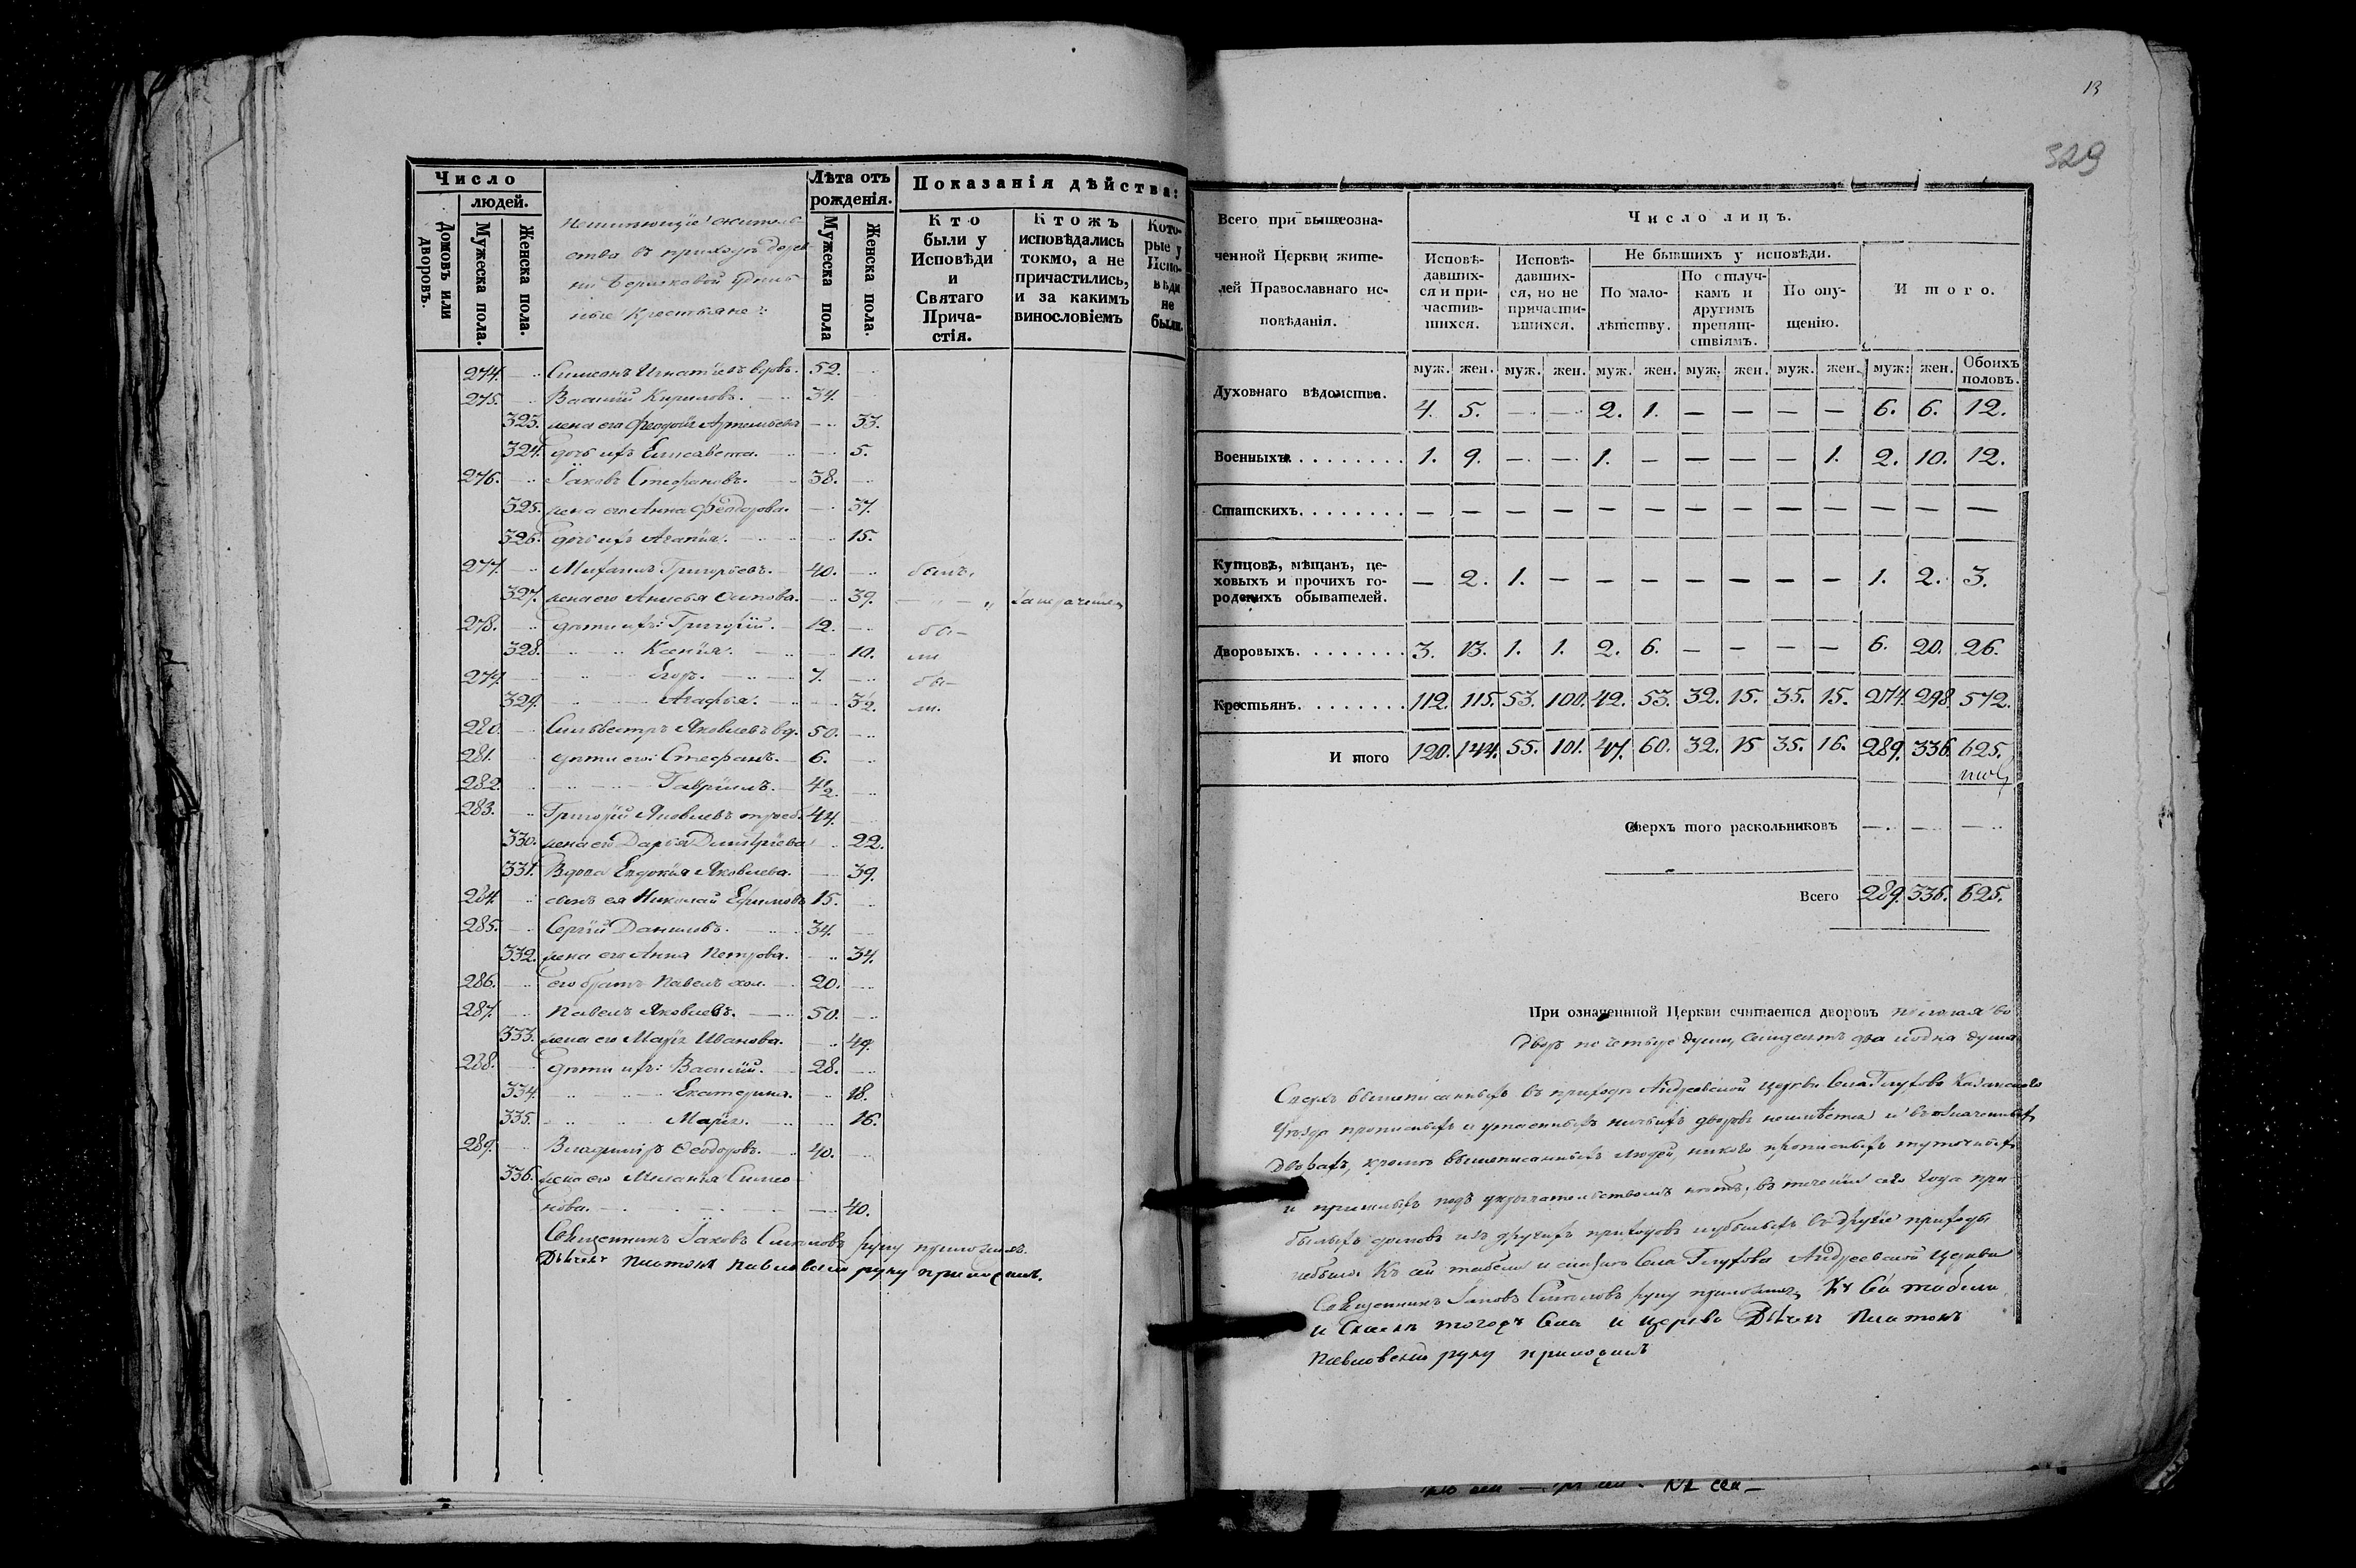 Число
людей.
Домовъ или дворовъ.
Мужеска пола.
Женска пола.
Лѣта отъ рожденія.
Мужеска пола
Женска пола.
Показанія дѣйства:
Кто были у Исповѣди и Святаго Причастія.
Ктожъ исповѣдались токмо, а не причастились, и за какимъ винословіемъ
Которые у Исповѣди не были.
ства въ приходѣ дерев-
ни удѣль-
ные крестьяне:
274. Симеонъ Игнатіевъ вдовъ. 52.
275. Василій Кириловъ. 34.
323. жена его Феодосія Артемьева 33.
324. дочь ихъ Елисавета. 5.
276. Іаковъ Стефановъ. 38.
325. жена его Анна Феодорова. 37.
326. дочь ихъ Агапія. 15.
277. Михаилъ Григорьевъ. 40. былъ.
327. жена его Анисья Осипова. 39.
278. дѣти ихъ: Григорій. 12.
328. Ксенія. 10.
279. Егоръ. 7.
329. Агафья. 3½.
280. Сильвестръ Яковлевъ вд. 50.
281. дѣти его: Стефанъ. 6.
282. Гавріилъ. 4½.
283. Григорій Яковлевъ 44.
330. жена его Дарья Димитріева 22.
331. Вдова Евдокія Яковлева. 39.
284. сынъ ея Николай Ефимовъ 15.
285. Сергій Даниловъ. 34.
332. жена его Анна Петрова. 34.
286. его братъ Павелъ хол. 20.
287. Павелъ Яковлевъ. 50.
333. жена его Марія Иванова. 49.
288. дѣти ихъ: Василій. 28.
334. Екатерина. 18.
335. Марія. 16.
289. Владиміръ Феодоровъ. 40.
336. жена его Меланія Симео-
нова. 40.
Священникъ Іаковъ руку приложилъ.
Дьячекъ Платонъ Павловскій руку приложилъ.
13
329
Всего при вышеозна-
ченной Церкви жите-
лей Православнаго ис-
повѣданія.
Число лицъ.
Исповѣ-давших-ся и при-частив-шихся.
Исповѣ-давших-ся, но не причасти-вшихся.
Не бывшихъ у исповѣди.
По мало-лѣтству.
По отлуч-камъ и другимъ препят-ствіямъ.
По опу-щенію.
Итого.
муж. жен. муж. жен. муж. жен. муж. жен. муж. жен. муж: жен. Обоихъ половъ.
Духовнаго вѣдомства. 4. 5. — — 2. 1. — — — — 6. 6. 12.
Военныхъ. 1. 9. — — 1. — — — — 1. 2. 10. 12.
Статскихъ. — — — — — — — — — — — — —
Купцовъ, мѣщанъ, це-
ховыхъ и прочихъ го-
родскихъ обывателей. — 2. 1. — — — — — — — 1. 2. 3.
Дворовыхъ. 3. 13. 1. 1. 2. 6. — — — — 6. 20. 26.
Крестьянъ. 112. 115. 53. 100. 42. 53. 32. 15. 35. 15. 274. 298 572.
И того 120. 144. 55. 101. 47. 60. 32. 15 35. 16. 289. 336. 625.
Сверхъ того раскольниковъ — — —
Всего 289. 336. 625.
При означенной Церкви считается дворовъ полагая во
дворъ по четыре души, семдесятъ два и одна душа
Сверхъ вышеписанныхъ въ приходѣ Андреевской церкви Села Глухова Казанскаго
уѣзда прописныхъ и утаенныхъ ничьихъ дворовъ неимѣется и въ означенныхъ
дворахъ, кромѣ вышеписанныхъ людей, никого прописныхъ
и пришлыхъ подъ укрывательствомъ нѣтъ, въ теченіи сего года при
былыхъ домовъ изъ другихъ приходовъ и убылыхъ въ другіе приходы
небыло. Къ сей табели и Села Глухова Андреевской церкви
Священникъ Іаковъ руку приложилъ. Къ Сей табели
и тогожъ Села и церкви Дьячекъ Платонъ
Павловскій руку приложилъ